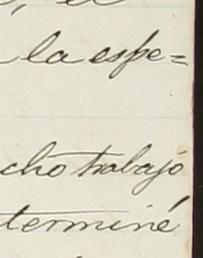 , el
la espe=
cho trabajó
terminé